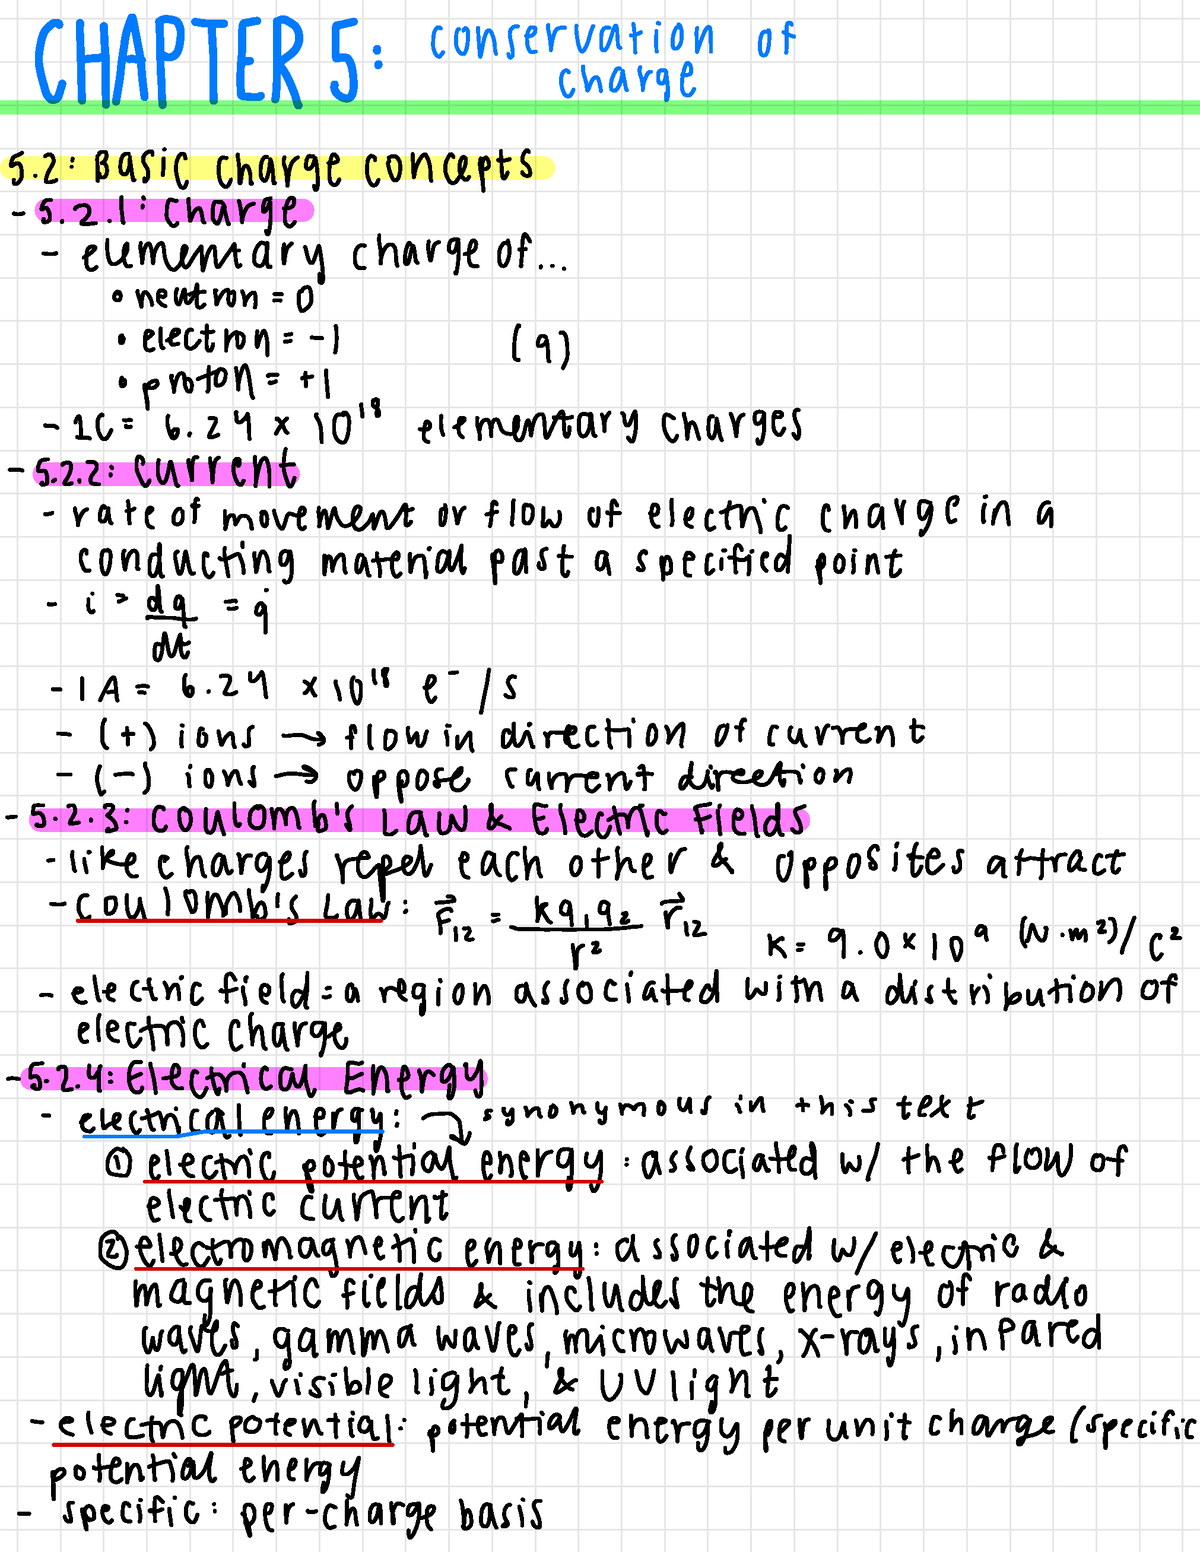 CHAPTER 5: conservation of
charge
5.2: Basic charge concepts
- 5.2.1: Charge
- elementary charge of...
• neutron = 0
• electron = -1 (q)
• proton = +1
- 1C = 6.24 x 10¹⁸ elementary charges
- 5.2.2: Current
- rate of movement or flow of electric charge in a
conducting material past a specified point
- i = dq/dt = q̇
- 1 A = 6.24 x 10¹⁸ e⁻ / s
- (+) ions → flow in direction of current
- (-) ions → oppose current direction
- 5.2.3: Coulomb's Law & Electric Fields
- like charges repel each other & opposites attract
- Coulomb's Law: F⃗₁₂ = kq₁q₂/r² r⃗₁₂ K = 9.0 x 10⁹ (N·m²)/C²
- electric field = a region associated with a distribution of
electric charge
- 5.2.4: Electrical Energy
- electrical energy: synonymous in this text
① electric potential energy: associated w/ the flow of
electric current
② electromagnetic energy: associated w/ electric &
magnetic fields & includes the energy of radio
waves, gamma waves, microwaves, x-rays, infared
light, visible light, & UV light
- electric potential: potential energy per unit charge (specific
potential energy
- specific: per-charge basis